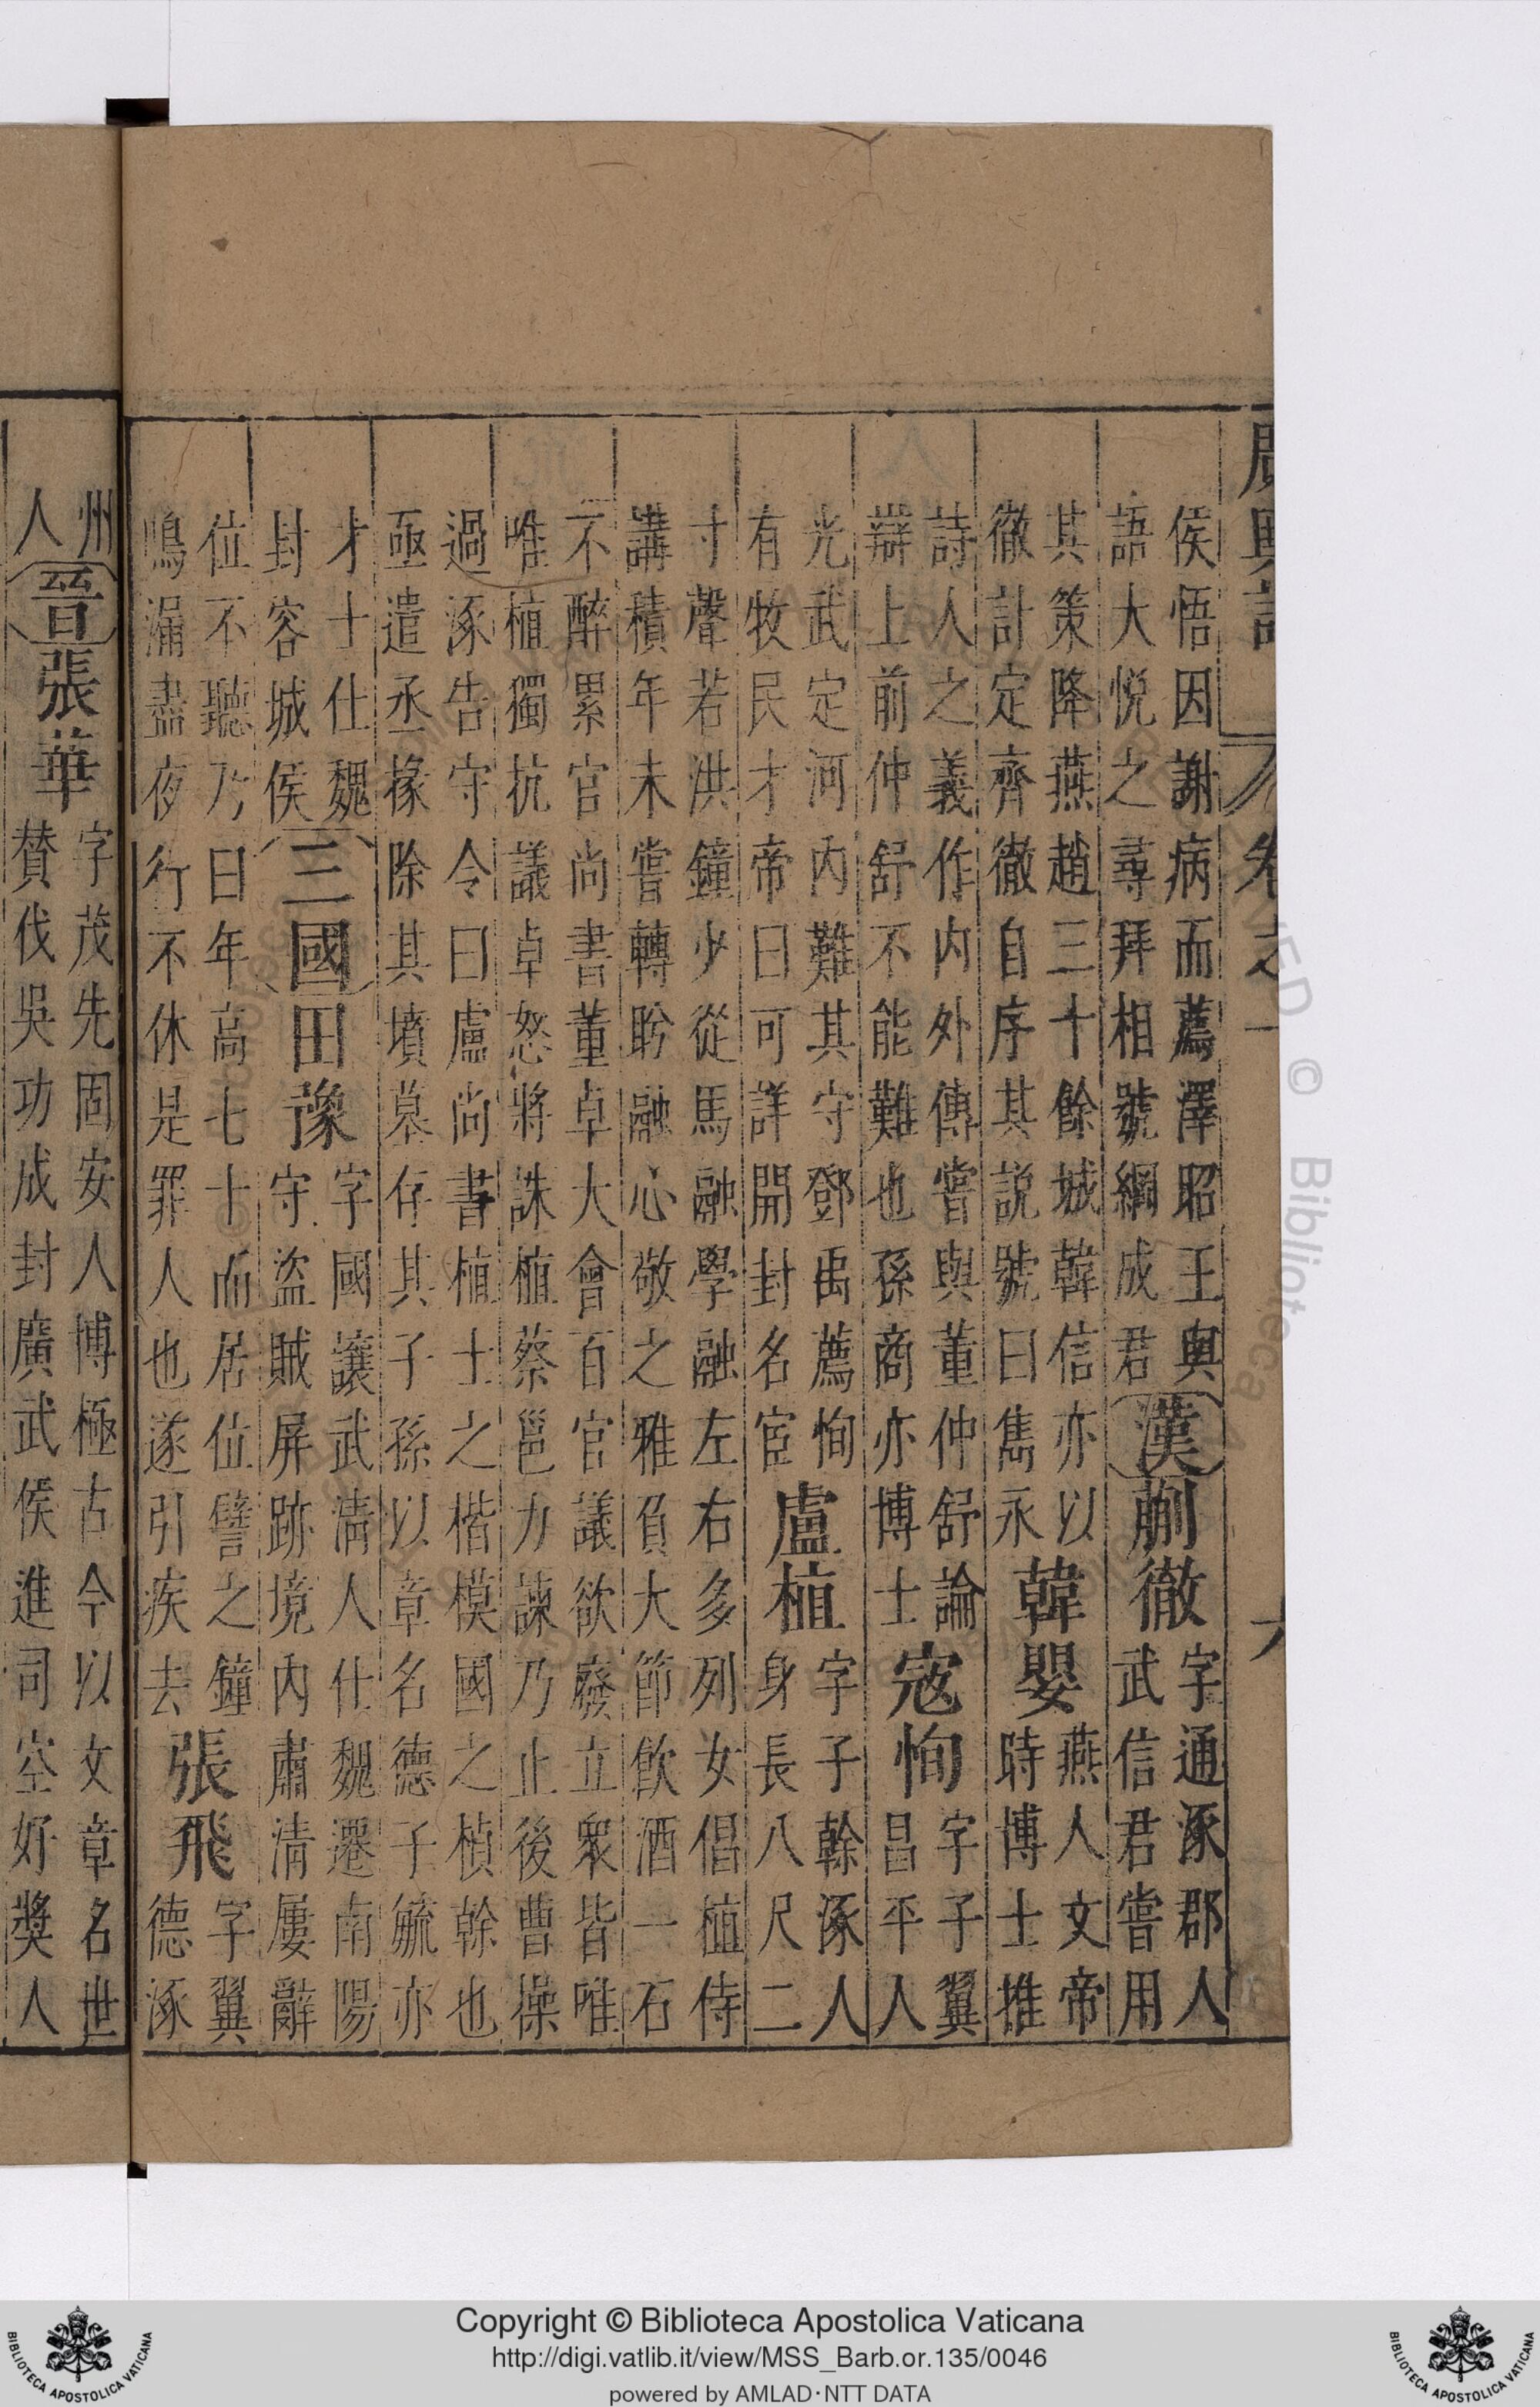 廣輿記 卷之一 六
侯悟因謝病而薦澤昭王與
語大悅之尋拜相號綱成君
漢 蒯徹
字通涿郡人
武信君嘗用
其策降燕趙三十餘城韓信亦以
徹計定齊徹自序其說號曰雋永
韓嬰
燕人文帝
時博士推
詩人之義作内外傳嘗與董仲舒論
辯上前仲舒不能難也孫商亦博士
寇恂
字子翼
昌平人
光武定河内難其守鄧禹薦恂
有牧民才帝曰可詳開封名宦
盧植
字子幹涿人
身長八尺二
寸聲若洪鐘少從馬融學融左右多列女倡植侍
講積年未嘗轉盼融心敬之雅負大節飲酒一石
不醉累官尚書董卓大會百官議欲廢立衆皆唯
唯植獨抗議卓怒將誅植蔡邕力諫乃止後曹操
過涿告守令曰盧尚書植士之楷模國之楨幹也
亟遣丞掾除其墳墓存其子孫以章名德子毓亦
才士仕魏
封容城侯
三國 田豫
字國讓武清人仕魏遷南陽
守盜賊屏跡境内肅清屢辭
位不聽乃曰年高七十而居位譬之鐘
鳴漏盡夜行不休是罪人也遂引疾去
張飛
字翼
德涿
州
人
晉 張華
字茂先固安人博極古今以文章名世
贊伐吳功成封廣武侯進司空好獎人
Copyright © Biblioteca Apostolica Vaticana
http://digi.vatlib.it/view/MSS_Barb.or.135/0046
powered by AMLAD·NTT DATA
BIBLIOTECA APOSTOLICA VATICANA
BIBLIOTECA APOSTOLICA VATICANA